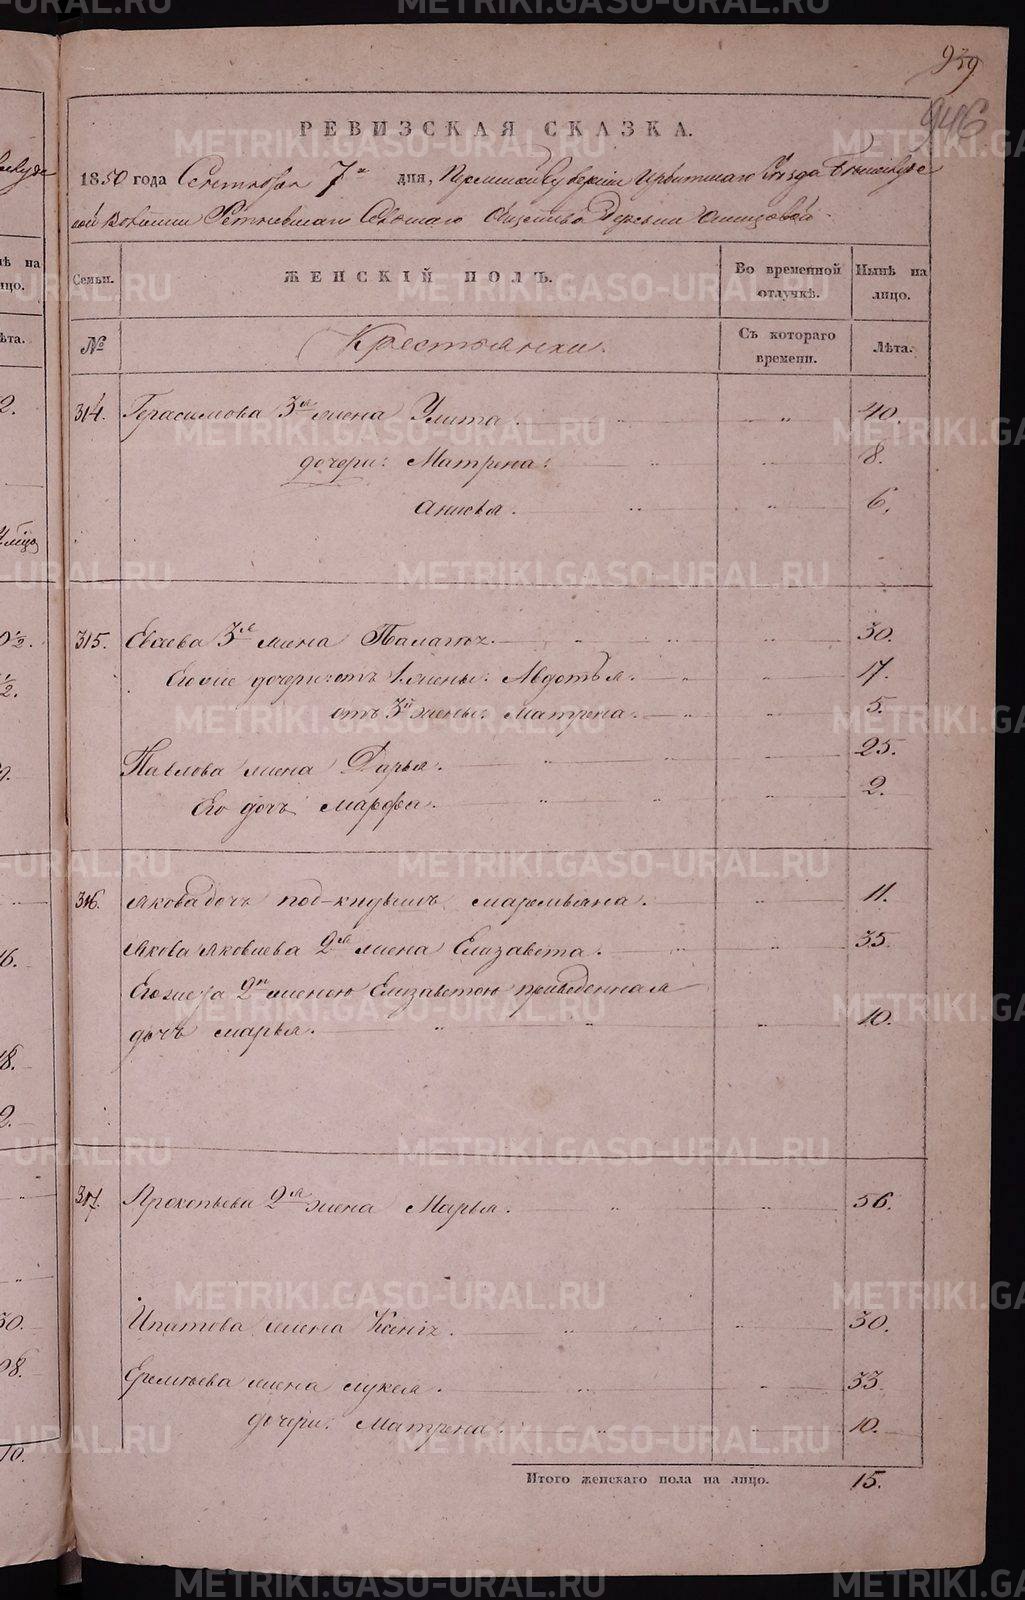 939
946
РЕВИЗСКАЯ СКАЗКА.
1850 года Сентября 7го дня, Пермской Губернии Ирбитского Уезда
ной Волости Сельскаго Общества Деревни
Семьи. ЖЕНСКІЙ ПОЛЪ. Во временной отлучкѣ. Нынѣ на лицо.
№ Крестьянки. Съ котораго времени. Лѣта.
314. Герасимова 3я жена Улита. " 40.
дочери: Матрена. " 8.
Анисья. " 6.
315. Евсева 3я жена Палагѣя. " 30.
Его же дочери: отъ 1 жены: Авдотья. " 17.
отъ 3й жены: Матрена. " 5.
Павлова жена Дарья. " 25.
Его дочь Марфа. " 2.
316. Якова дочь Маремьяна. " 11.
Якова Яковлева 2я жена Елизавета. " 35.
Его же съ 2й женою Елизаветою приведенная
дочь Марья. " 10.
317. Прокопьева 2я жена Марья. " 56.
Ипатова жена Ксенія. " 30.
Еремѣева жена Лукея. " 33
дочери: Матрена. " 10.
Итого женскаго пола на лицо. 15.